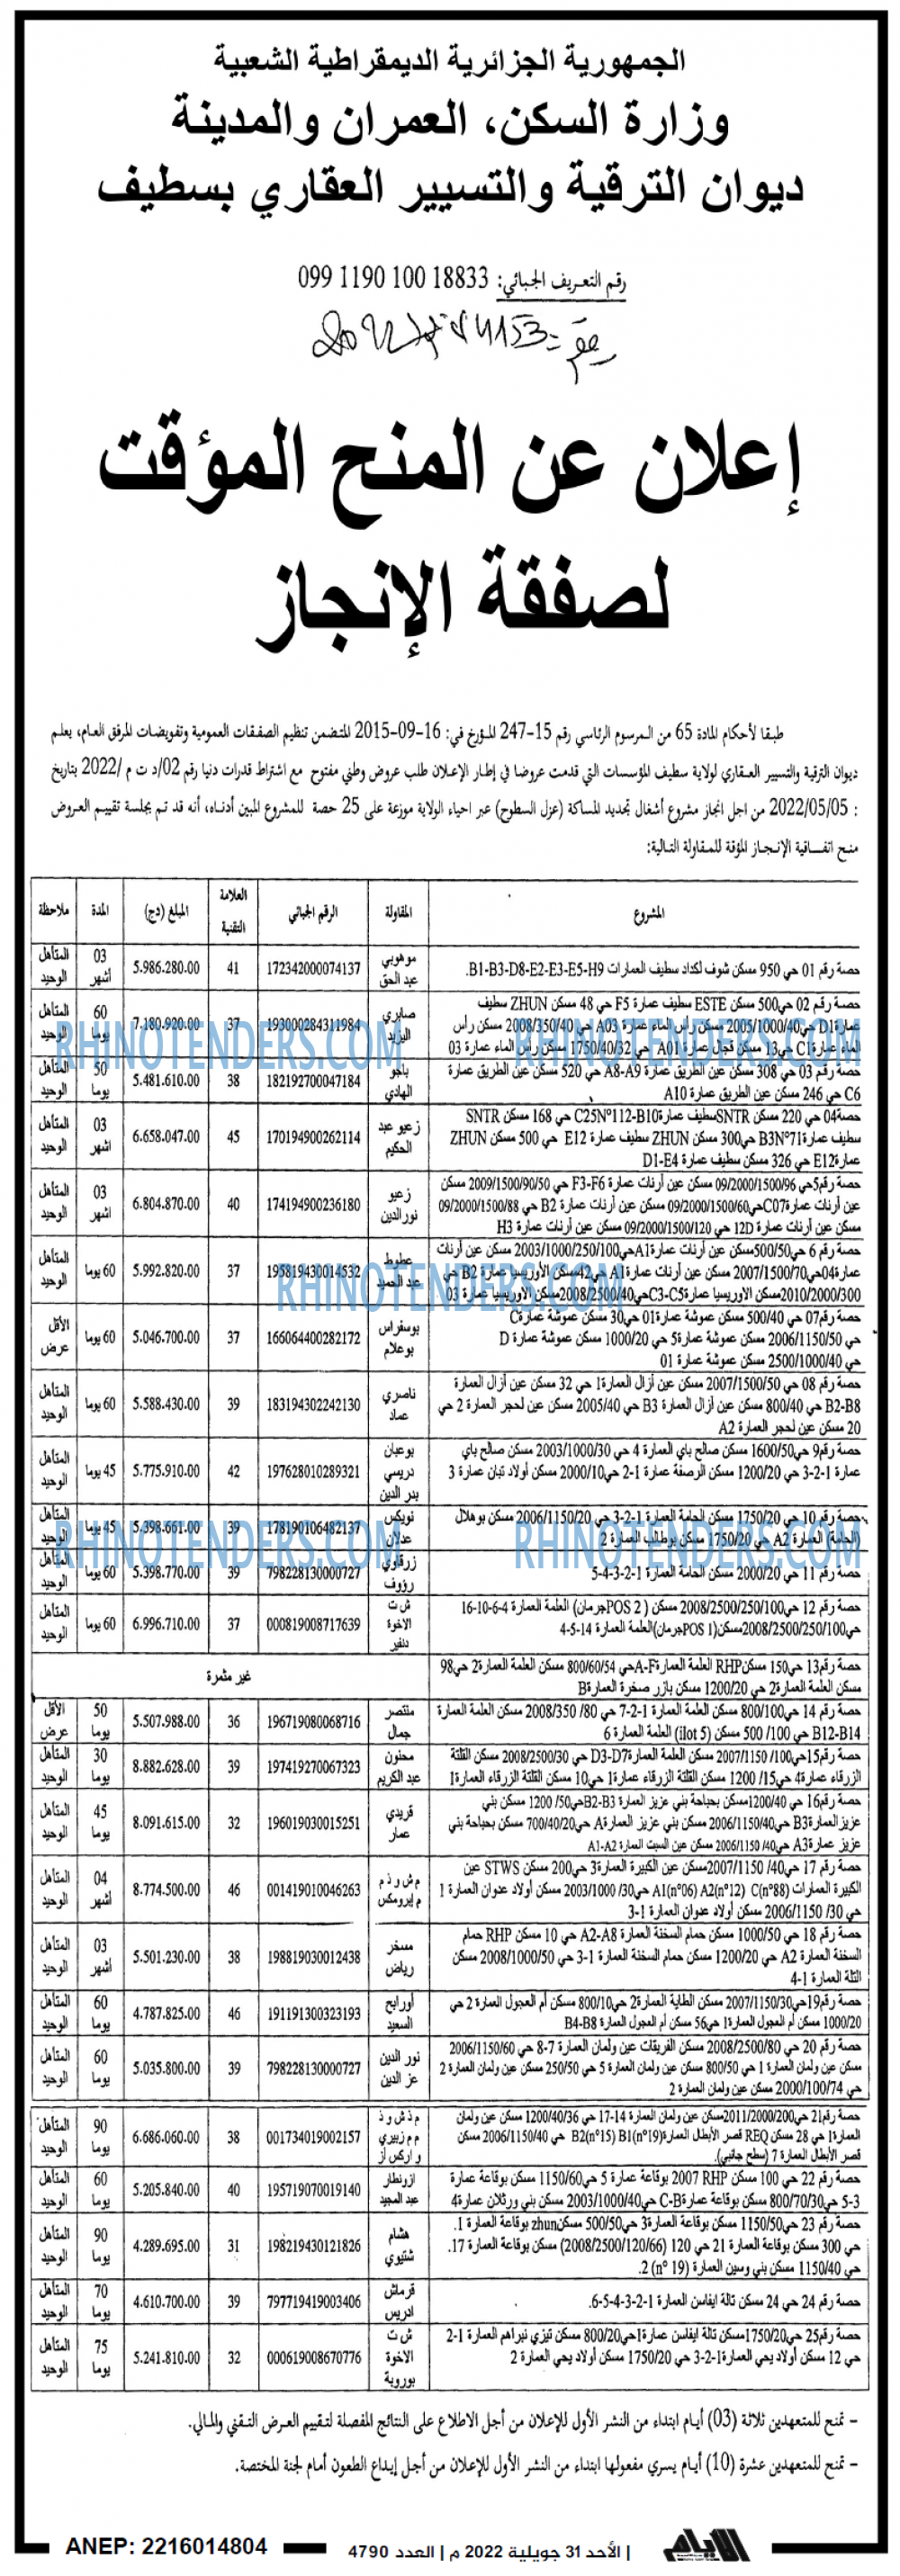 الجمهورية الجزائرية الديمقراطية الشعبية
وزارة السكن، العمران والمدينة
ديوان الترقية والتسيير العقاري بسطيف
رقم التعريف الجبائي: 099 1190 100 18833
إعلان عن المنح المؤقت
لصفقة الإنجاز
طبقا لأحكام المادة 65 من المرسوم الرئاسي رقم 15-247 المؤرخ في: 16-09-2015 المتضمن تنظيم الصفقات العمومية وتفويضات المرفق العام، يعلم
ديوان الترقية والتسيير العقاري لولاية سطيف المؤسسات التي قدمت عروضا في إطار الإعلان طلب عروض وطني مفتوح مع اشتراط قدرات دنيا رقم 02/د ت م /2022 بتاريخ
: 2022/05/05 من اجل انجاز مشروع أشغال تجديد المساكة (عزل السطوح) عبر احياء الولاية موزعة على 25 حصة للمشروع المبين أدناه، أنه قد تم بجلسة تقييم العروض
منح اتفاقية الإنجاز المؤقتة للمقاولة التالية:
المشروع | المقاولة | الرقم الجبائي | العلامة التقنية | المبلغ (دج) | المدة | ملاحظة
حصة رقم 01 حي 950 مسكن شوف لكداد سطيف العمارات B1-B3-D8-E2-E3-E5-H9. | موهوبي عبد الحق | 172342000074137 | 41 | 5.986.280.00 | 03 أشهر | المتأهل الوحيد
حصة رقم 02 حي500 مسكن ESTE سطيف عمارة F5 حي 48 مسكن ZHUN سطيف
عمارة D1حي 2005/1000/40 مسكن رأس الماء عمارة A03 حي 2008/350/40 مسكن رأس
الماء عمارة C1حي13 مسكن قجال عمارة A01 حي 1750/40/32 مسكن رأس الماء عمارة 03 | صابري اليزيد | 193000284311984 | 37 | 7.180.920.00 | 60 يوما | المتأهل الوحيد
حصة رقم 03 حي 308 مسكن عين الطريق عمارة A8-A9 حي 520 مسكن عين الطريق عمارة
C6 حي 246 مسكن عين الطريق عمارة A10 | باجو الهادي | 182192700047184 | 38 | 5.481.610.00 | 50 يوما | المتأهل الوحيد
حصة04 حي 220 مسكن SNTRسطيف عمارةC25N°112-B10 حي 168 مسكن SNTR
سطيف عمارةB3N°71حي300 مسكن ZHUN سطيف عمارة E12 حي 500 مسكن ZHUN
عمارةE12 حي 326 مسكن سطيف عمارة D1-E4 | زعيو عبد الحكيم | 170194900262114 | 45 | 6.658.047.00 | 03 اشهر | المتأهل الوحيد
حصة رقم5حي 09/2000/1500/96 مسكن عين أرنات عمارة F3-F6 حي 2009/1500/90/50 مسكن
عين أرنات عمارةC07حي09/2000/1500/60 مسكن عين أرنات عمارة B2 حي 09/2000/1500/88
مسكن عين أرنات عمارة 12D حي 09/2000/1500/120 مسكن عين أرنات عمارة H3 | زعيو نورالدين | 174194900236180 | 40 | 6.804.870.00 | 03 اشهر | المتأهل الوحيد
حصة رقم 6 حي500/50مسكن عين أرنات عمارة A1حي2003/1000/250/100 مسكن عين أرنات
عمارة04حي2007/1500/70 مسكن عين أرنات عمارة A1 حي42مسكن الأوريسيا عمارة B2 حي
2010/2000/300مسكن الاوريسيا عمارة C3-C5حي2008/2500/40مسكن الأوريسيا عمارة 03 | عطوط عبد الحميد | 195819430014532 | 37 | 5.992.820.00 | 60 يوما | المتأهل الوحيد
حصة رقم07 حي 500/40 مسكن عموشة عمارة01 حي30 مسكن عموشة عمارةC
حي 2006/1150/50 مسكن عموشة عمارة5 حي 1000/20 مسكن عموشة عمارة D
حي 2500/1000/40 مسكن عموشة عمارة 01 | بوسفراس بوعلام | 166064400282172 | 37 | 5.046.700.00 | 60 يوما | الأقل عرض
حصة رقم 08 حي 2007/1500/50 مسكن عين أزال العمارة1 حي 32 مسكن عين أزال العمارة
B2-B8 حي 800/40 مسكن عين أزال العمارة B3 حي 2005/40 مسكن عين لحجر العمارة 2 حي
20 مسكن عين لحجر العمارة A2 | ناصري عماد | 183194302242130 | 39 | 5.588.430.00 | 60 يوما | المتأهل الوحيد
حصة رقم9 حي1600/50 مسكن صالح باي العمارة 4 حي 2003/1000/30 مسكن صالح باي
عمارة 1-2-3 حي 1200/20 مسكن الرصفة عمارة 1-2 حي2000/10 مسكن أولاد تبان عمارة 3 | بوعبان دريسي بدر الدين | 197628010289321 | 42 | 5.775.910.00 | 45 يوما | المتأهل الوحيد
حصة رقم 10 حي 1750/20 مسكن الحامة العمارة 1-2-3 حي 2006/1150/20 مسكن بوهلال
(الحامة) العمارة A2 حي 1750/20 مسكن بوطالب العمارة 2 | نويكس عدلان | 178190106482137 | 39 | 5.398.661.00 | 45 يوما | المتأهل الوحيد
حصة رقم 11 حي 2000/20 مسكن الحامة العمارة 1-2-3-4-5 | زرقاوي رؤوف | 798228130000727 | 39 | 5.398.770.00 | 60 يوما | المتأهل الوحيد
حصة رقم 12 حي 2008/2500/250/100 مسكن ( POS 2جرمان) العلمة العمارة 4-6-10-16
حي2008/2500/250/100مسكن(POS 1جرمان)العلمة العمارة 14-5-4 | ش ت الاخوة دنفير | 000819008717639 | 37 | 6.996.710.00 | 60 يوما | المتأهل الوحيد
حصة رقم13 حي150 مسكنRHP العلمة العمارةA-Fحي 800/60/54 مسكن العلمة العمارة2 حي98
مسكن العلمة العمارة2 حي 1200/20 مسكن بازر صخرة العمارةB | غير مثمرة
حصة رقم 14 حي 800/100 مسكن العلمة العمارة 1-2-7 حي 80/ 2008/350 مسكن العلمة العمارة
B12-B14 حي 100/ 500 مسكن (ilot 5) العلمة العمارة 6 | منتصر جمال | 196719080068716 | 36 | 5.507.988.00 | 50 يوما | الأقل عرض
حصة رقم15حي100/ 2007/1150 مسكن العلمة العمارةD3-D7 حي 2008/2500/30 مسكن القلتة
الزرقاء عمارة4 حي15/ 1200 مسكن القلتة الزرقاء عمارة1 حي10 مسكن القلتة الزرقاء العمارة1 | محنون عبد الكريم | 197419270067323 | 39 | 8.882.628.00 | 30 يوما | المتأهل الوحيد
حصة رقم16 حي 1200/40مسكن بحباحة بني عزيز العمارة B2-B3حي50/ 1200 مسكن بني
عزيز العمارةB3 حي2006/1150/40 مسكن بني عزيز العمارةA حي 700/40/20 مسكن بحباحة بني
عزيز عمارةA3 حي40/ 2006/1150 مسكن عين السبت العمارة A1-A2 | قريدي عمار | 196019030015251 | 32 | 8.091.615.00 | 45 يوما | المتأهل الوحيد
حصة رقم 17 حي40/ 2007/1150مسكن عين الكبيرة العمارة3 حي200 مسكن STWS عين
الكبيرة العمارات A1(n°06) A2(n°12) C(n°88) حي30/ 2003/1000 مسكن أولاد عدوان العمارة 1
حي 30/ 2006/1150 مسكن أولاد عدوان العمارة 1-3 | م ش و ذ م م إيرومكس | 001419010046263 | 46 | 8.774.500.00 | 04 أشهر | المتأهل الوحيد
حصة رقم 18 حي 1000/50 مسكن حمام السخنة العمارة A2-A8 حي 10 مسكن RHP حمام
السخنة العمارة A2 حي 1200/20 مسكن حمام السخنة العمارة 1-3 حي 2008/1000/50 مسكن
التلة العمارة 1-4 | مسخر رياض | 198819030012438 | 38 | 5.501.230.00 | 03 أشهر | المتأهل الوحيد
حصة رقم19حي2007/1150/30 مسكن الطاية العمارة2 حي800/10 مسكن أم العجول العمارة 2 حي
1000/20 مسكن أم العجول العمارة1 حي56 مسكن أم العجول العمارة B4-B8 | أورابح السعيد | 191191300323193 | 46 | 4.787.825.00 | 60 يوما | المتأهل الوحيد
حصة رقم 20 حي 2008/2500/80 مسكن الفريقات عين ولمان العمارة 7-8 حي 2006/1150/60
مسكن عين ولمان العمارة 1 حي 800/50 مسكن عين ولمان العمارة 5 حي 250/50 مسكن عين ولمان العمارة 2
حي 2000/100/74 مسكن عين ولمان العمارة 2 | نور الدين عز الدين | 798228130000727 | 39 | 5.035.800.00 | 60 يوما | المتأهل الوحيد
حصة رقم21 حي2011/2000/200مسكن عين ولمان العمارة 14-17 حي 1200/40/36 مسكن عين ولمان
العمارة1 حي 28 مسكن REQ قصر الأبطال العمارة(B2(n°15) B1(n°19 حي 2006/1150/40 مسكن
قصر الأبطال العمارة 7 (سطح جانبي). | م ذ ش و ذ م م زبيري و اركس از | 001734019002157 | 38 | 6.686.060.00 | 90 يوما | المتأهل الوحيد
حصة رقم 22 حي 100 مسكن RHP 2007 بوقاعة عمارة 5 حي1150/60 مسكن بوقاعة عمارة
3-5 حي800/70/30 مسكن بوقاعة عمارةC-B حي2003/1000/40 مسكن بني ورثلان عمارة4 | ازونطار عبد المجيد | 195719070019140 | 40 | 5.205.840.00 | 60 يوما | المتأهل الوحيد
حصة رقم 23 حي 1150/50 مسكن بوقاعة العمارة3 حي500/50 مسكنzhun بوقاعة العمارة 1.
حي 300 مسكن بوقاعة العمارة 21 حي 120 (2008/2500/120/66) مسكن بوقاعة العمارة 17.
حي 1150/40 مسكن بني وسين العمارة (n° 19) 2. | هشام شتيوي | 198219430121826 | 31 | 4.289.695.00 | 90 يوما | المتأهل الوحيد
حصة رقم 24 حي 24 مسكن تالة ايفاسن العمارة 1-2-3-4-5-6. | قرماش ادريس | 797719419003406 | 39 | 4.610.700.00 | 70 يوما | المتأهل الوحيد
حصة رقم25 حي1750/20مسكن تالة ايفاسن عمارة1حي800/20 مسكن تيزي نبراهم العمارة 1-2
حي 12 مسكن أولاد يحي العمارة1-2-3 حي 1750/20 مسكن أولاد يحي العمارة 2 | ش ت الاخوة بوروبة | 000619008670776 | 32 | 5.241.810.00 | 75 يوما | المتأهل الوحيد
– تمنح للمتعهدين ثلاثة (03) أيام ابتداء من النشر الأول للإعلان من أجل الاطلاع على النتائج المفصلة لتقييم العرض التقني والمالي.
– تمنح للمتعهدين عشرة (10) أيام يسري مفعولها ابتداء من النشر الأول للإعلان من أجل إيداع الطعون أمام لجنة المختصة.
الأيام | الأحد 31 جويلية 2022 م | العدد 4790
ANEP: 2216014804
RHINOTENDERS.COM
RHINOTENDERS.COM
RHINOTENDERS.COM
RHINOTENDERS.COM
RHINOTENDERS.COM